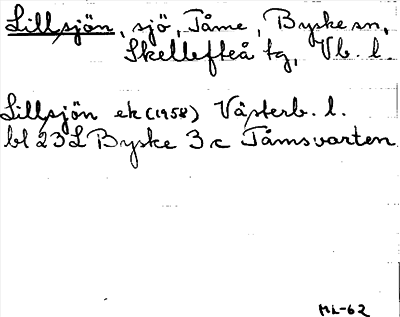 Lillsjön, sjö, Tåme, Byske sn,
Skellefteå tg, Vb. l.
Lillsjön ek (1958) Västerb. l.
bl 23L Byske 3c Tåmsvarten
ML-62